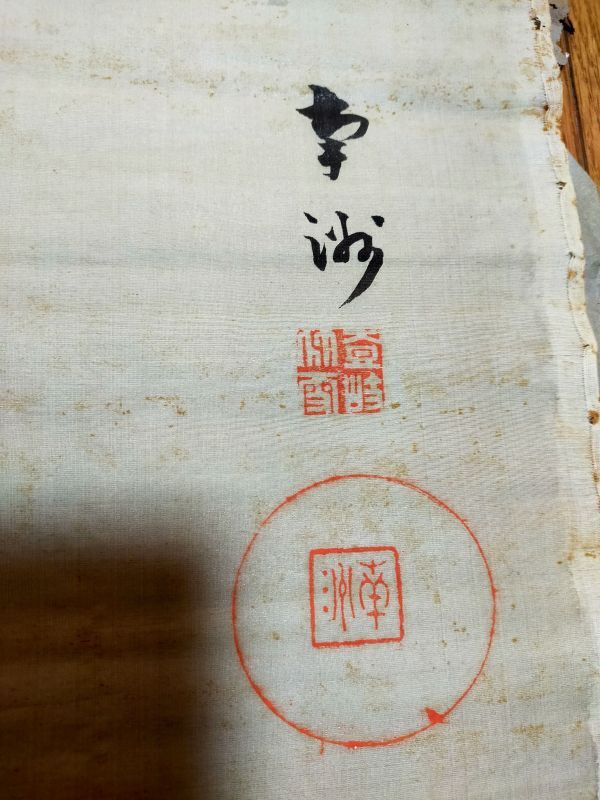 南洲
南洲